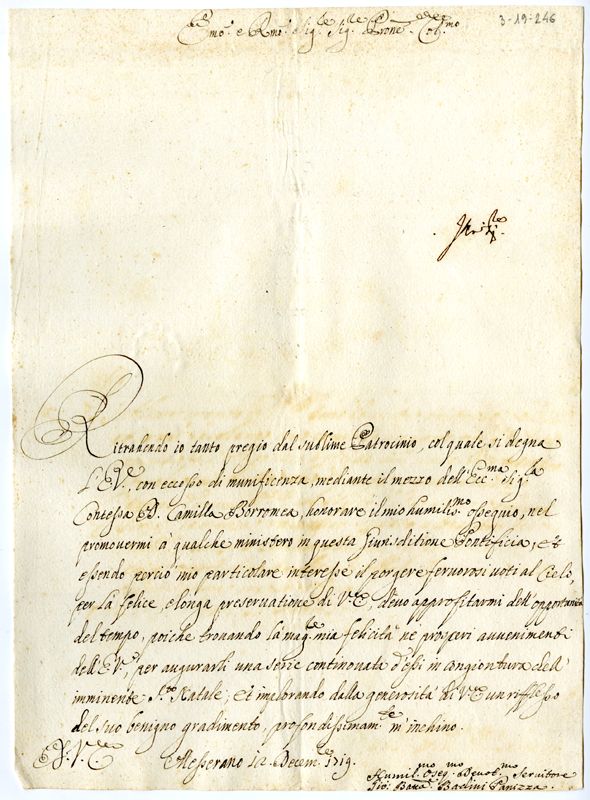 Em.mo e Rmo. Sig.re Sig.re Prone. Col.mo
3-19-246
Ritrahendo io tanto pregio dal sublime Patrocinio, col quale si degna
l'E.V.e, con eccesso di munificenza, mediante il mezzo dell'Ecc.ma Sig.ra
Contessa D. Camilla Borromea, honorare il mio humilis.mo ossequio, nel
promovermi à qualche ministero in questa Giurisditione Pontificia, et
essendo perciò mio particolare interesse il porgere fervorosi voti al Cielo,
per la felice, e longa preservatione di V.E., devo approfitarmi dell'opportunità
del tempo, poiche trovando la mag.re mia felicità ne prosperi avvenimenti
dell'E.V., per augurarli una serie continovata d'essi in congiontura dell'
imminente S.to Natale; et implorando dalla generosità di V.E. un riflesso
del suo benigno gradimento, profondissimam.te m'inchino.
Messerano 12. Decem.re 1719.
Humil.mo Osseq.mo Devot.mo Servitore
Gio: Batta